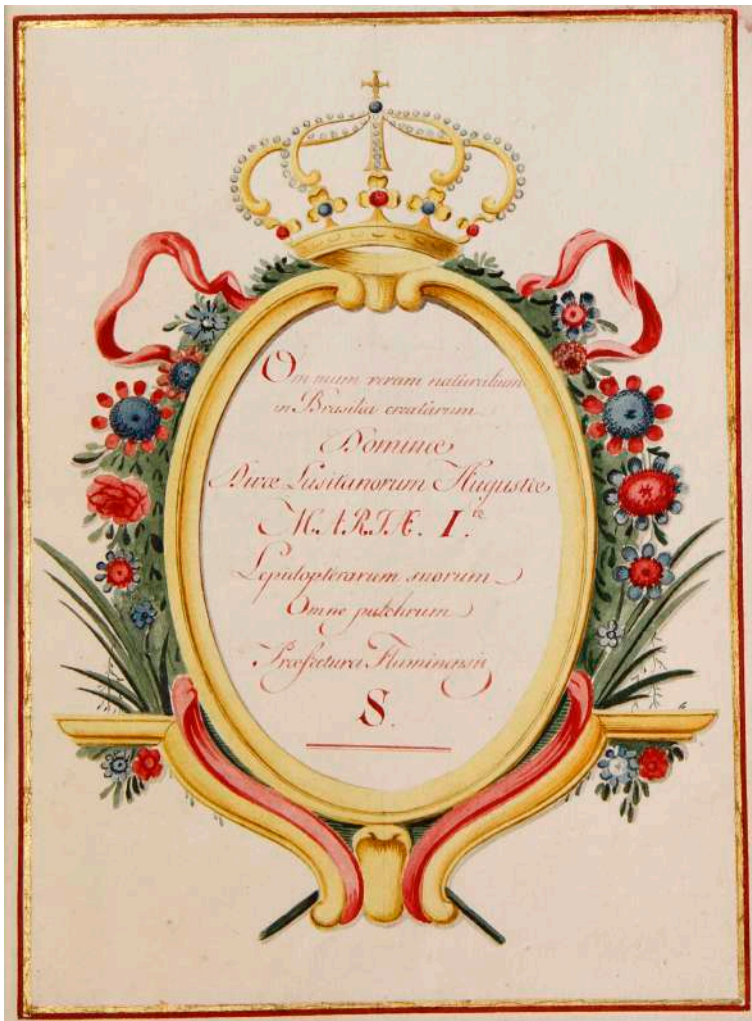 Omnium rerum naturalium
in Brasilia creatarum
Dominæ
Divæ Lusitanorum Augustæ
MARIÆ. I.æ
Lepidopterarum suorum
Omne pulchrum
Præfectura Fluminensis
S.